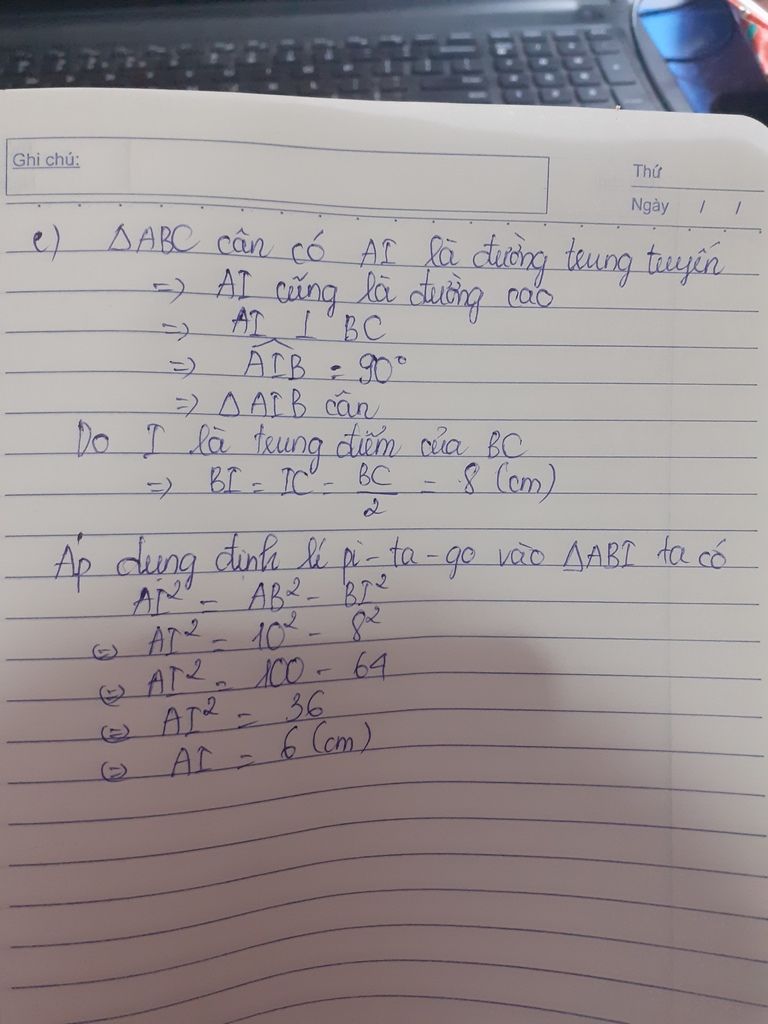 Ghi chú:
Thứ
Ngày / /
c) ΔABC cân có AI là đường trung tuyến
=> AI cũng là đường cao
=> AI ⊥ BC
=> \widehat{AIB} = 90°
=> Δ AIB cân
Do I là trung điểm của BC
=> BI = IC = \frac{BC}{2} = 8 (cm)
Áp dụng định lí pi-ta-go vào ΔABI ta có
AI² = AB² - BI²
(=) AI² = 10² - 8²
(=) AI² = 100 - 64
(=) AI² = 36
(=) AI = 6 (cm)